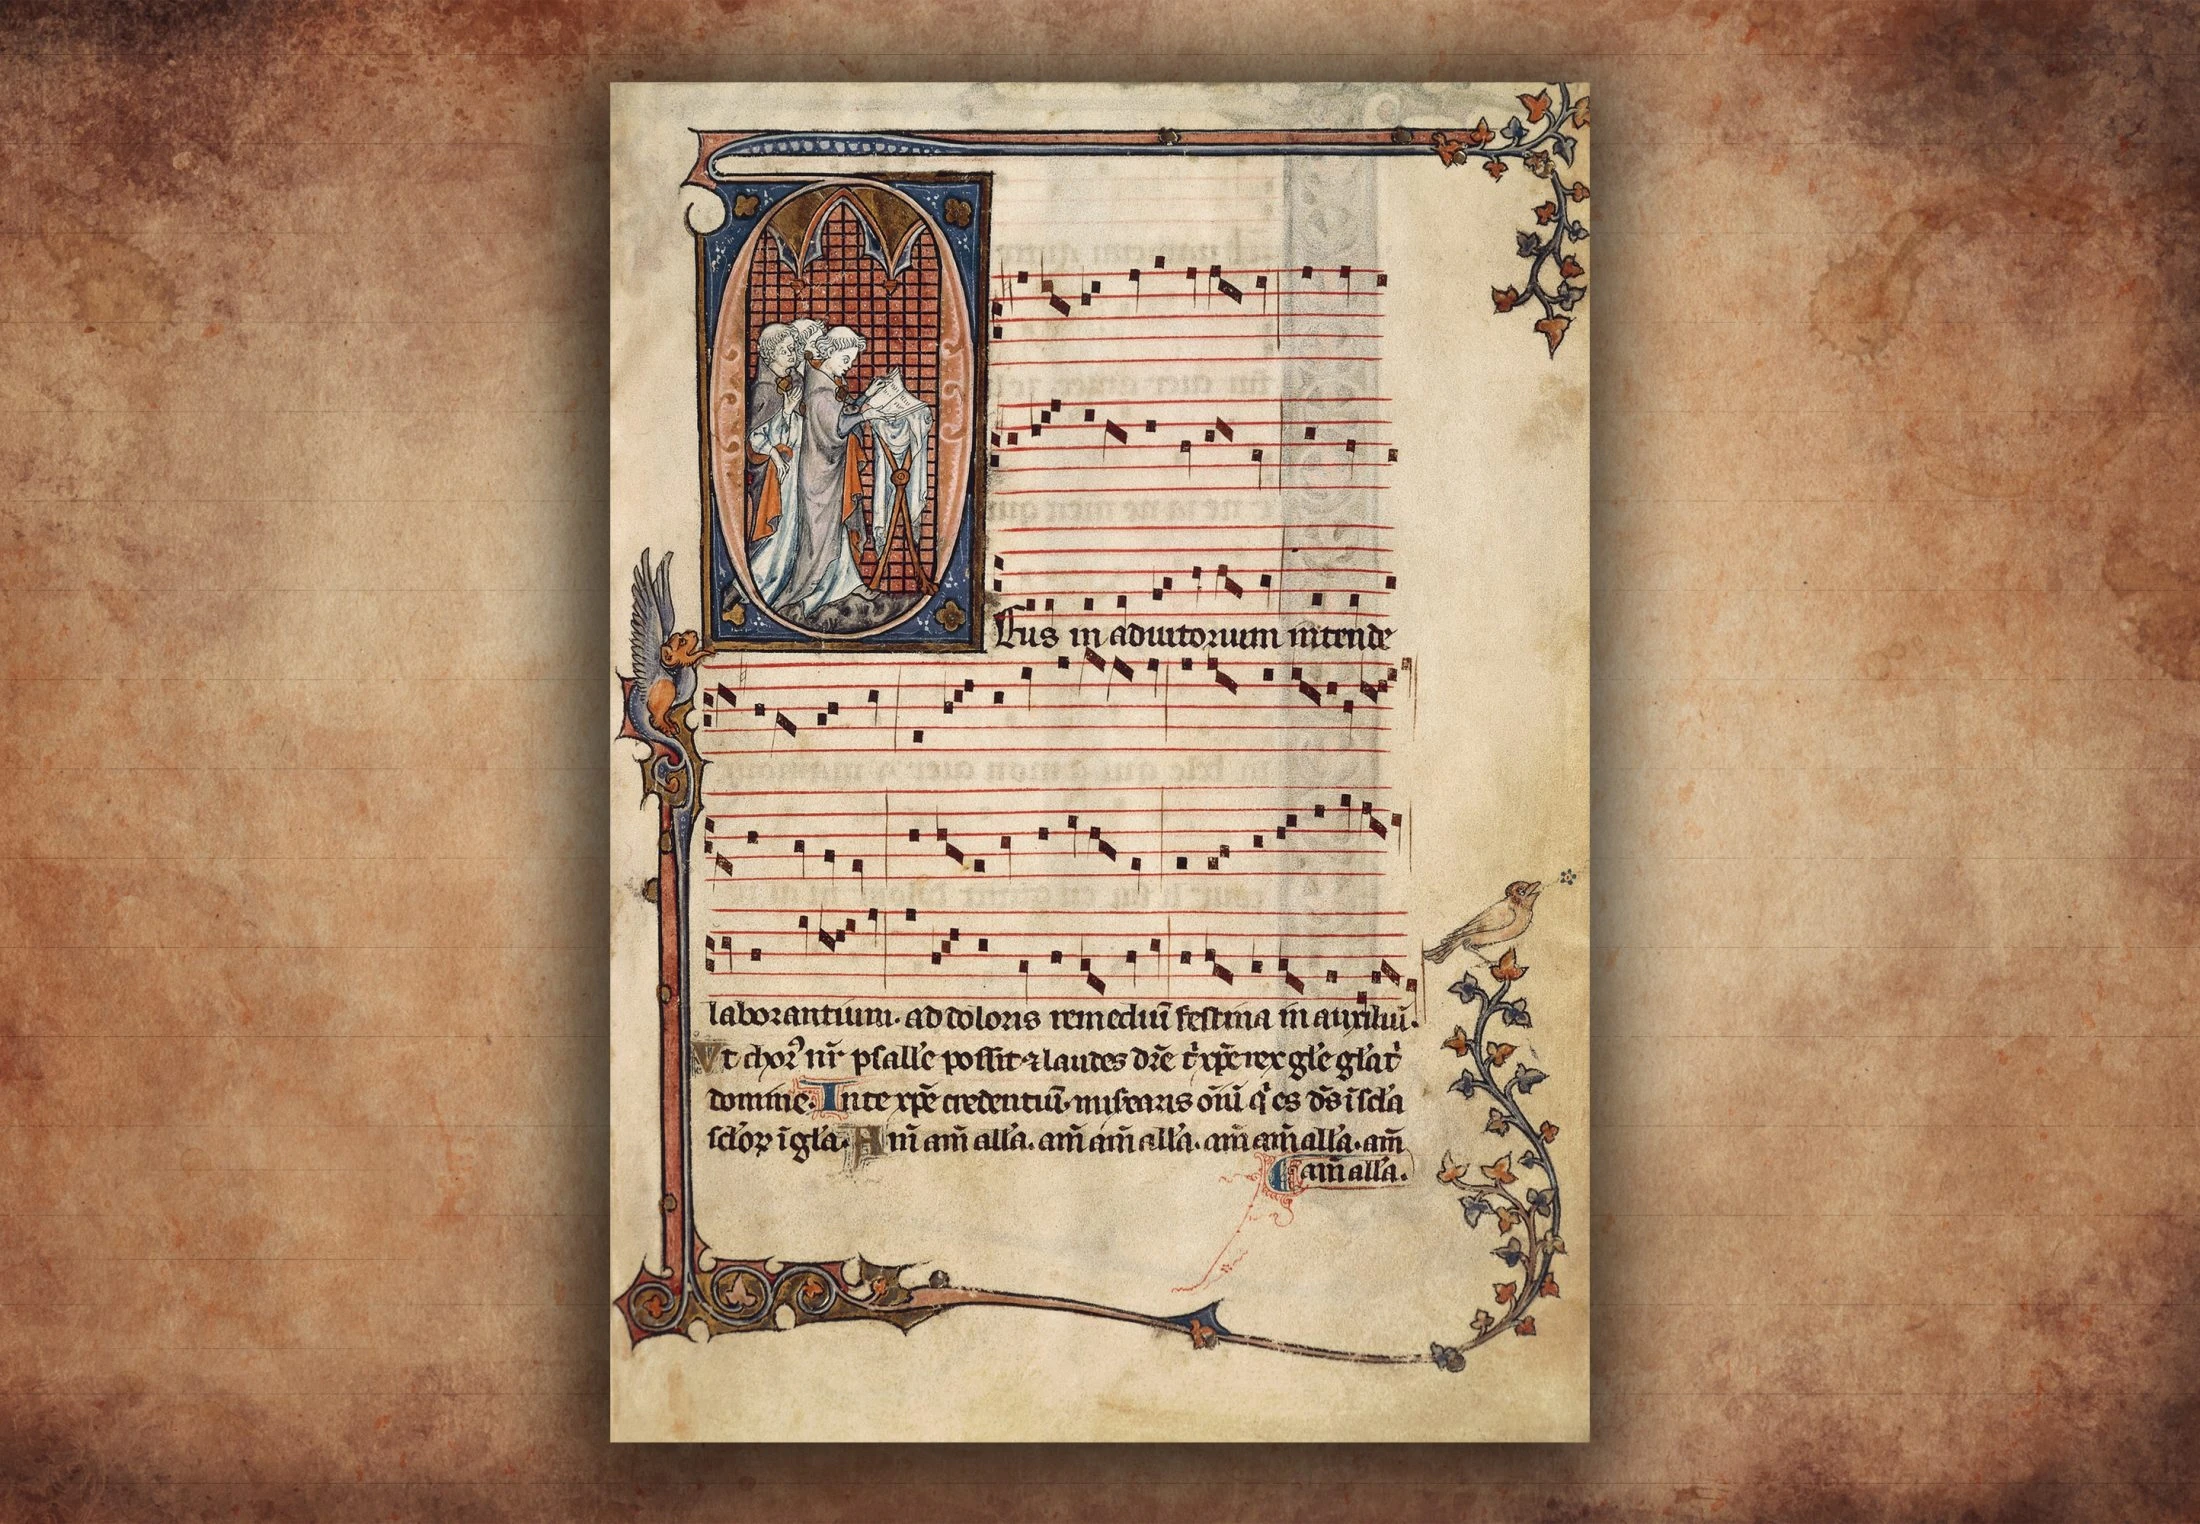 Eus in adiutorium intende
laborantium. ad doloris remediū festina in auxiliū.
Vt chorꝰ nr̄ psall'e possit ⁊ laudes dr̄e t̄ xp̄e rex gl'e gl'a t̄
domine. In te xp̄e credentiū. misearis om̄iū q̄ es dš ī scl̄a
scl̄oꝝ ī gl̄a. Am̄ am̄ all'a. am̄ am̄ all'a. am̄ am̄ all'a. am̄
am̄ all'a.